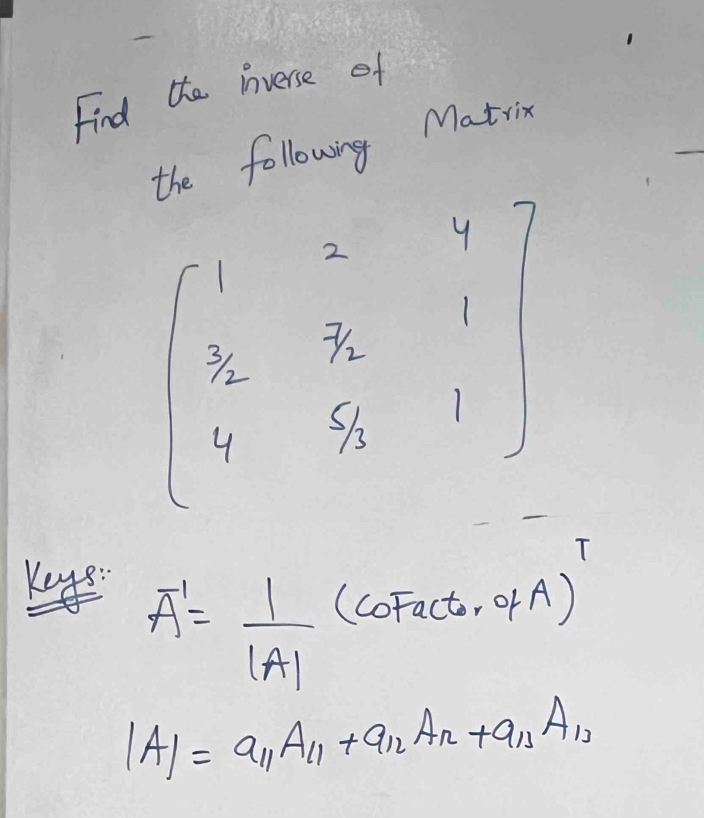 Find the inverse of
the following Matrix
1 2 4
3/2 7/2 1
4 5/3 1
Keys:
A⁻¹ = 1/|A| (CoFactor of A)ᵀ
|A| = a₁₁ A₁₁ + a₁₂ A₁₂ + a₁₃ A₁₃